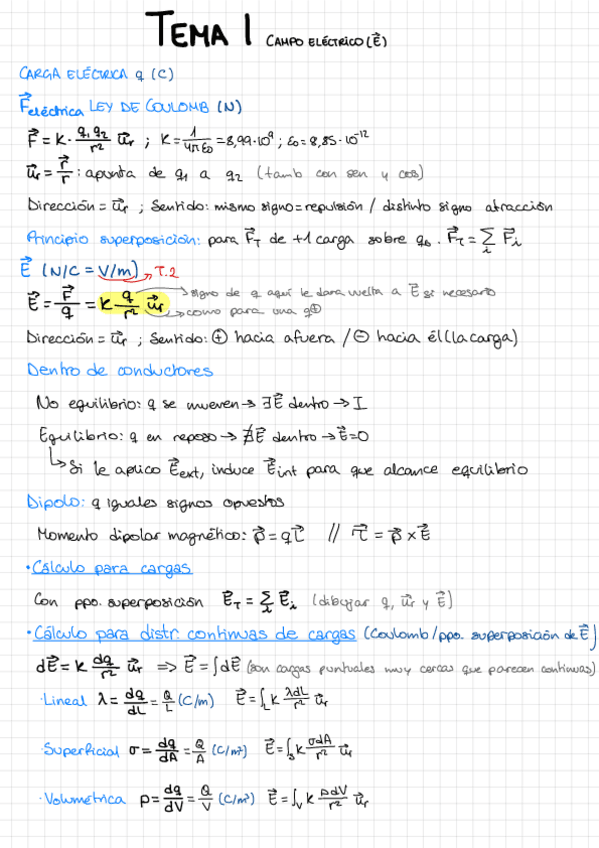 TEMA 1 CAMPO ELÉCTRICO (E⃗)
CARGA ELÉCTRICA q (C)
F⃗eléctrica LEY DE COULOMB (N)
F⃗ = K · q₁q₂/r² u⃗r ; K = 1/4πε₀ = 8,99·10⁹ ; ε₀ = 8,85·10⁻¹²
u⃗r = r⃗/r : apunta de q₁ a q₂ (tamb con sen y cos)
Dirección = u⃗r ; Sentido: mismo signo = repulsión / distinto signo atracción
Principio superposición: para F⃗T de +1 carga sobre q₀. F⃗T = ∑i F⃗i
E⃗ (N/C = V/m) → T.2
E⃗ = F⃗/q = K q/r² u⃗r → signo de q aquí le dara vuelta a E⃗ si necesario
→ como para una q⊕
Dirección = u⃗r ; Sentido: ⊕ hacia afuera / ⊖ hacia él (la carga)
Dentro de conductores
No equilibrio: q se mueven → ∃E⃗ dentro → I
Equilibrio: q en reposo → ∄E⃗ dentro → E⃗=0
↳ Si le aplico E⃗ext, induce E⃗int para que alcance equilibrio
Dipolo: q iguales signos opuestos
Momento dipolar magnético: p⃗ = qL⃗ // τ⃗ = p⃗ × E⃗
· Cálculo para cargas
Con ppo. superposición E⃗T = ∑i E⃗i (dibujar q, u⃗r y E⃗)
· Cálculo para distr. continuas de cargas (Coulomb/ppo. superposición de E⃗)
dE⃗ = K dq/r² u⃗r ⇒ E⃗ = ∫dE⃗ (son cargas puntuales muy cercas que parecen continuas)
· Lineal λ = dq/dL = Q/L (C/m) E⃗ = ∫L K λdL/r² u⃗r
· Superficial σ = dq/dA = Q/A (C/m²) E⃗ = ∫s K σdA/r² u⃗r
· Volumétrica ρ = dq/dV = Q/V (C/m³) E⃗ = ∫V K ρdV/r² u⃗r